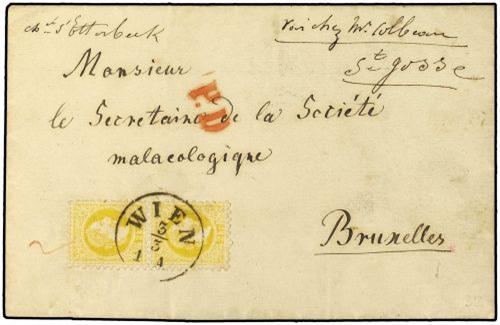 chée d'Etterbeek
voir chez Mr. Colbeau
St Josse
Monsieur
P.D.
le Secretaire de la Société
malacologique
WIEN
3
3
1 4
Bruxelles